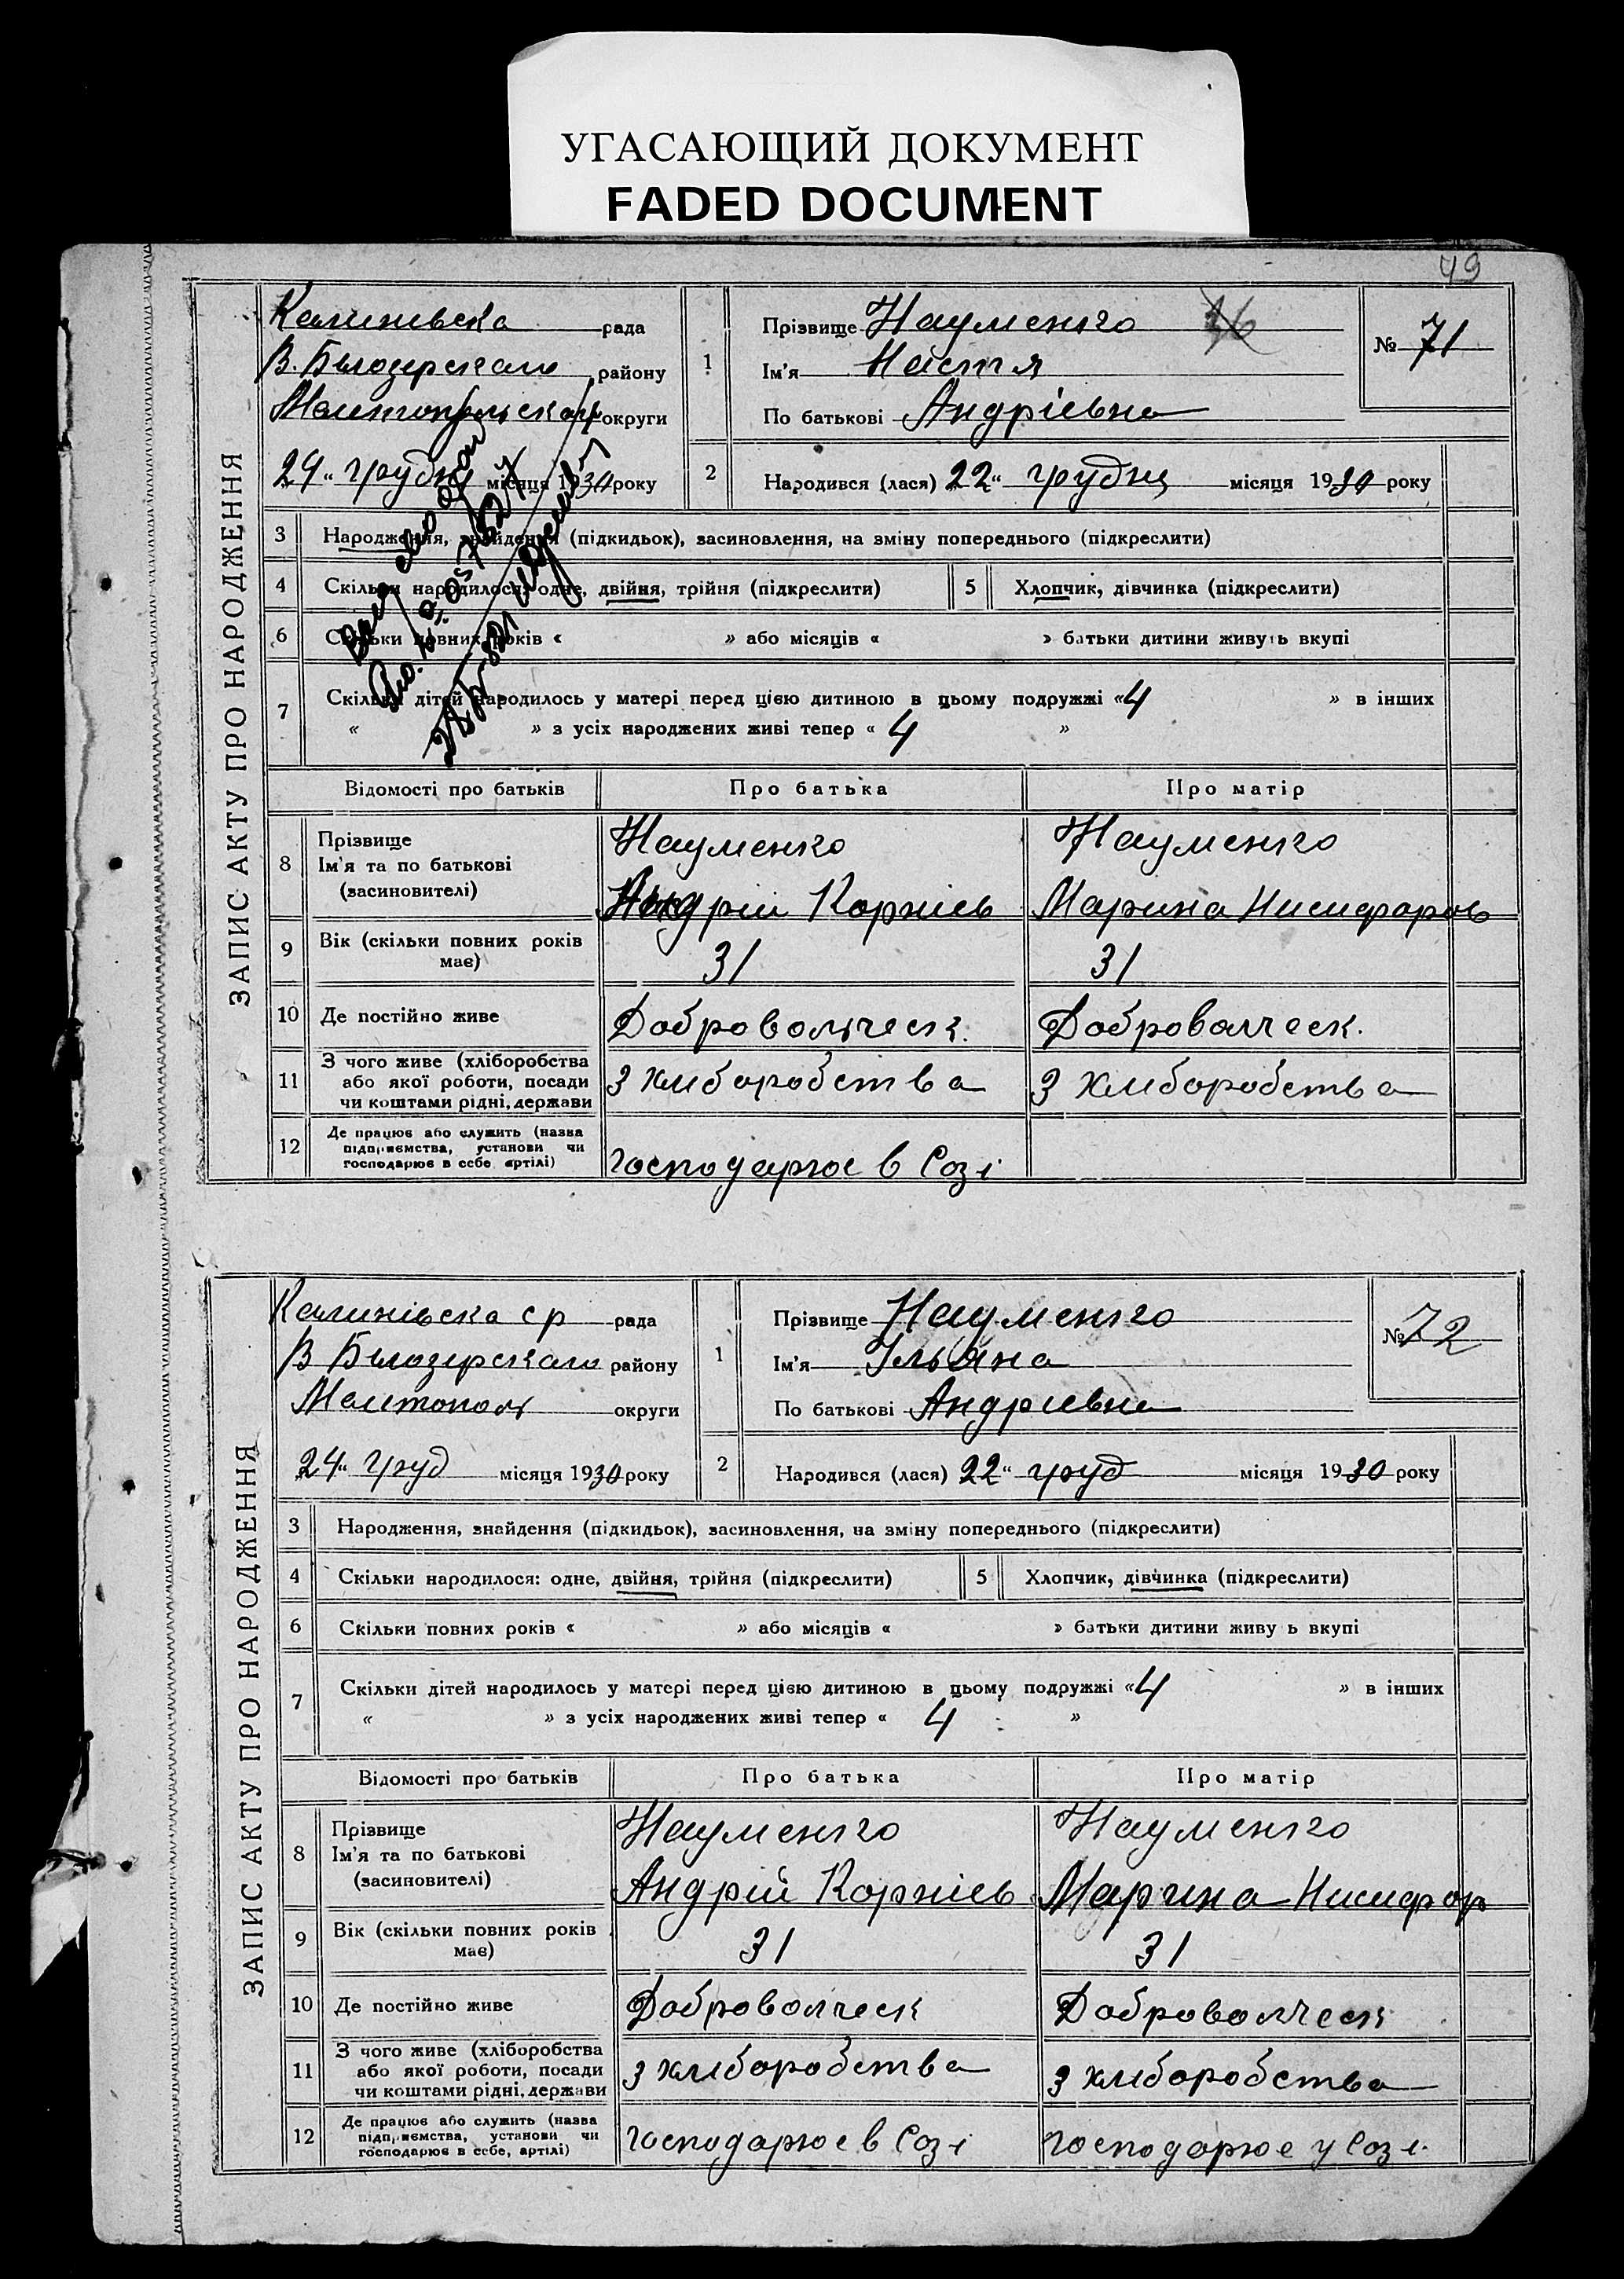 УГАСАЮЩИЙ ДОКУМЕНТ
FADED DOCUMENT
49
ЗАПИС АКТУ ПРО НАРОДЖЕННЯ
Калинівска рада
В. Білозерскаго району
Мелитопольскої округи
24 „ грудня місяця 1930 року
1
Прізвище Науменко
36
Ім'я Настя
По батькові Андріевна
№ 71
2
Народився (лася) 22 “ грудня місяця 1930 року
3 Народження, знайдення (підкидьок), засиновлення, на зміну попереднього (підкреслити)
4 Скільки народилося: одне, двійня, трійня (підкреслити) 5 Хлопчик, дівчинка (підкреслити)
6 Скільки повних років « » або місяців « » батьки дитини живуть вкупі
7 Скільки дітей народилось у матері перед цією дитиною в цьому подружжі «4 » в інших
« » з усіх народжених живі тепер « 4 »
Відомості про батьків Про батька Про матір
8 Прізвище
Ім'я та по батькові
(засиновителі)
Науменко
Андрій Корніев
Науменко
Марина Никифоров
9 Вік (скільки повних років
має)
31
31
10 Де постійно живе Добровольческ. Доброволческ.
11 З чого живе (хліборобства
або якої роботи, посади
чи коштами рідні, держави
З хліборобства
З хліборобства
12 Де працює або служить (назва
підприємства, установи чи
господарює в себе, артілі)
господарює в Созі
ЗАПИС АКТУ ПРО НАРОДЖЕННЯ
Калинівска с р рада
В Білозерскаго району
Мелитополь округи
24 „ груд місяця 1930 року
1
Прізвище Науменко
Ім'я Ульяна
По батькові Андриевна
№ 72
2
Народився (лася) 22 “ груд місяця 1930 року
3 Народження, знайдення (підкидьок), засиновлення, на зміну попереднього (підкреслити)
4 Скільки народилося: одне, двійня, трійня (підкреслити) 5 Хлопчик, дівчинка (підкреслити)
6 Скільки повних років « » або місяців « » батьки дитини живу ь вкупі
7 Скільки дітей народилось у матері перед цією дитиною в цьому подружжі «4 » в інших
« » з усіх народжених живі тепер « 4 »
Відомості про батьків Про батька Про матір
8 Прізвище
Ім'я та по батькові
(засиновителі)
Науменко
Андрій Корніев
Науменко
Марина Никифор
9 Вік (скільки повних років
має)
31
31
10 Де постійно живе Доброволческ Доброволческ
11 З чого живе (хліборобства
або якої роботи, посади
чи коштами рідні, держави
з хліборобства
з хліборобства
12 Де працює або служить (назва
підприємства, установи чи
господарює в себе, артілі)
господарює в Созі
господарює у Созі.